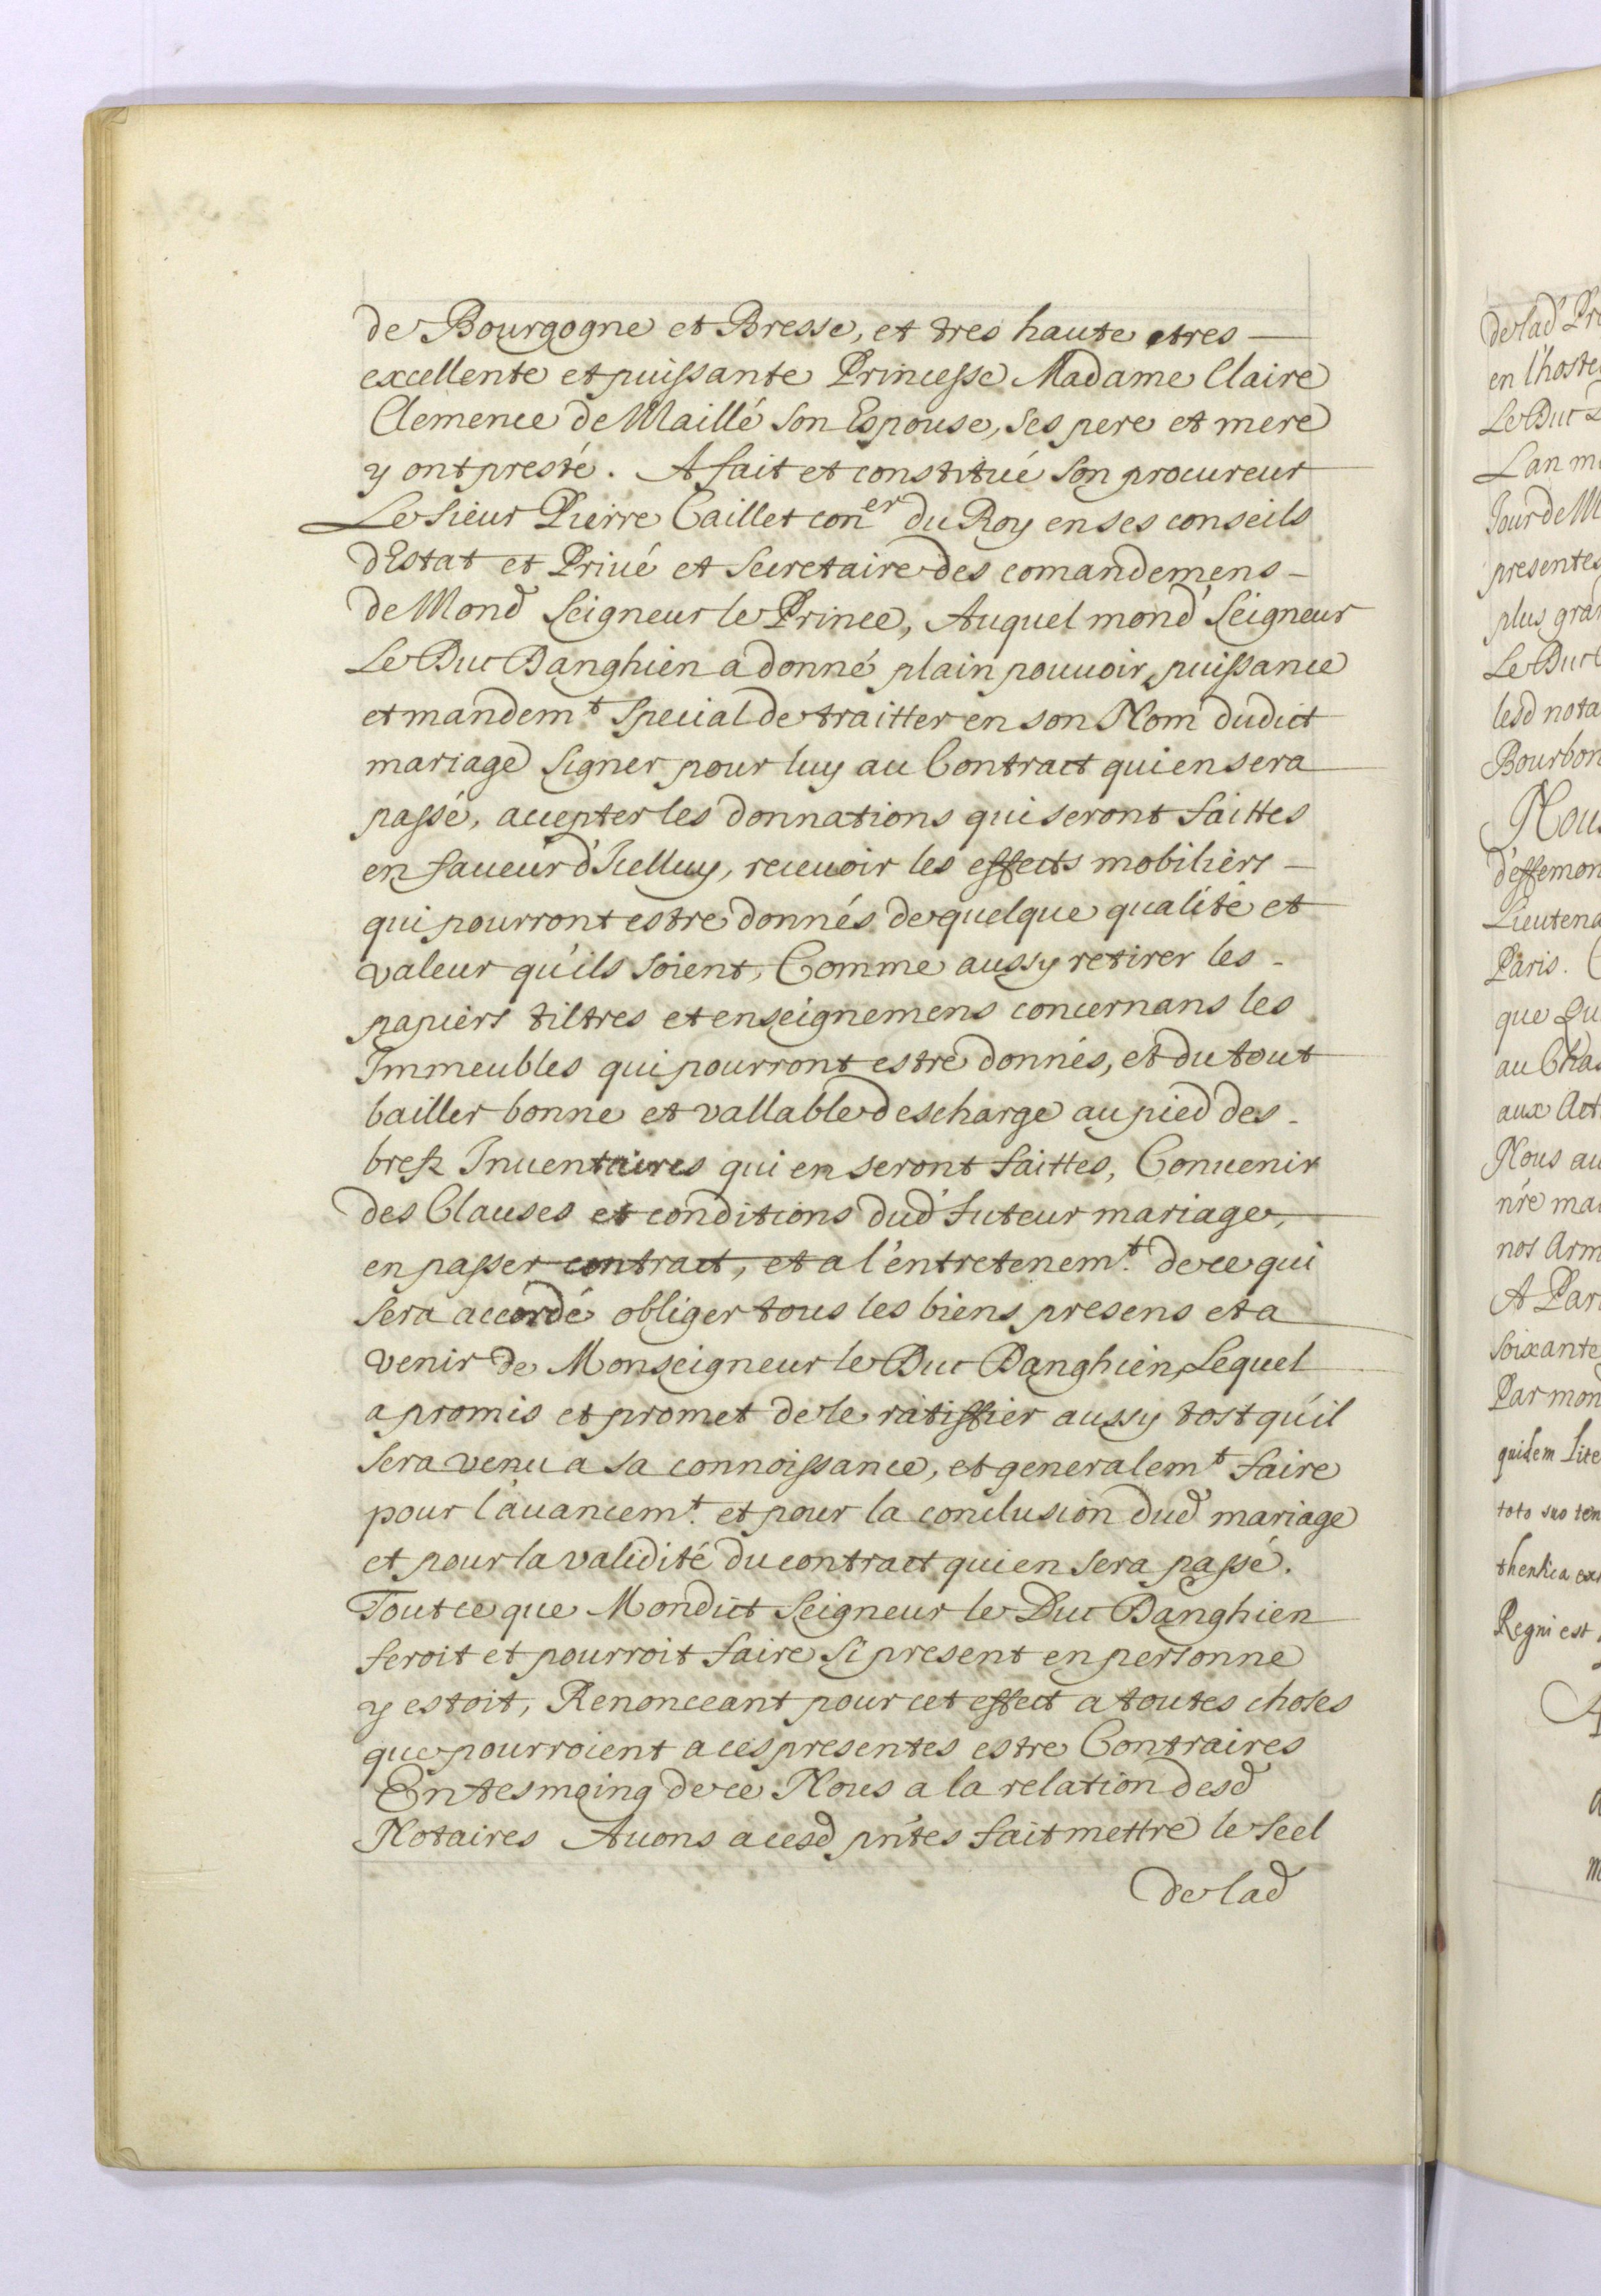 de Bourgogne et Bresse, et tres haute etres
excellente et puissante Princesse Madame Claire
Clemence de Maillé son Espouse, ses pere et mere
y ont presté. A fait et constitué son procureur
Le sieur Pierre Caillet con^er du Roy en ses conseils
d'Estat et Priué et Secretaire des comandemens
de Mond Seigneur le Prince, Auquel mond Seigneur
Le Duc Danghien a donné plain pouuoir puissance
et mandem^t special de traitter en son Nom dudict
mariage signer pour luy au Contract qui en sera
passé, accepter les donnations qui seront faittes
en faueur d'Icelluy, receuoir les effects mobiliers
qui pourront estre donnés de quelque qualité et
valeur qu'ils soient, Comme aussy retirer les
papiers tiltres et enseignemens concernans les
Immeubles qui pourront estre donnés, et du tout
bailler bonne et vallable descharge au pied des
brefz Inuentaires qui en seront faittes, Conuenir
des Clauses et conditions dud futeur mariage,
en passer contract, et a l'entretenem^t. de ce qui
sera accordé obliger tous les biens presens et a
venir de Monseigneur le Duc Danghien, Lequel
a promis et promet de le ratiffier aussy tost qu'il
sera venu a sa connoissance, et generalem^t faire
pour l'auancem^t. et pour la conclusion dud mariage
et pour la validité du contract qui en sera passé.
Tout ce que Mondict Seigneur le Duc Danghien
feroit et pourroit faire si present en personne
y estoit, Renonceant pour cet effect a toutes choses
que pourroient a ces presentes estre Contraires
En tesmoing de ce Nous a la relation desd
Notaires Auons a cesd pn'tes fait mettre le scel
de lad
de lad Pre
en l'hoste
Le Duc
Lan m
Jour de M
presentes
plus gran
Le Duc
lesd nota
Bourbon
Nous
d'effemon
Lieutena
Paris.
que Qu
au Chas
aux Act
Nous au
n're ma
nos Arm
A Par
soixante
Par mon
quidem Lite
toto suo ten
thentica ex
Regni est